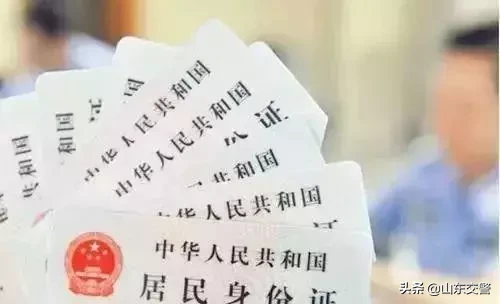 国
和国
共和国
中华人民共和国
份
中华人民共和国
份证
民共和国
中华人民共和国
中华人民共和国
居民身份证
头条 @山东交警